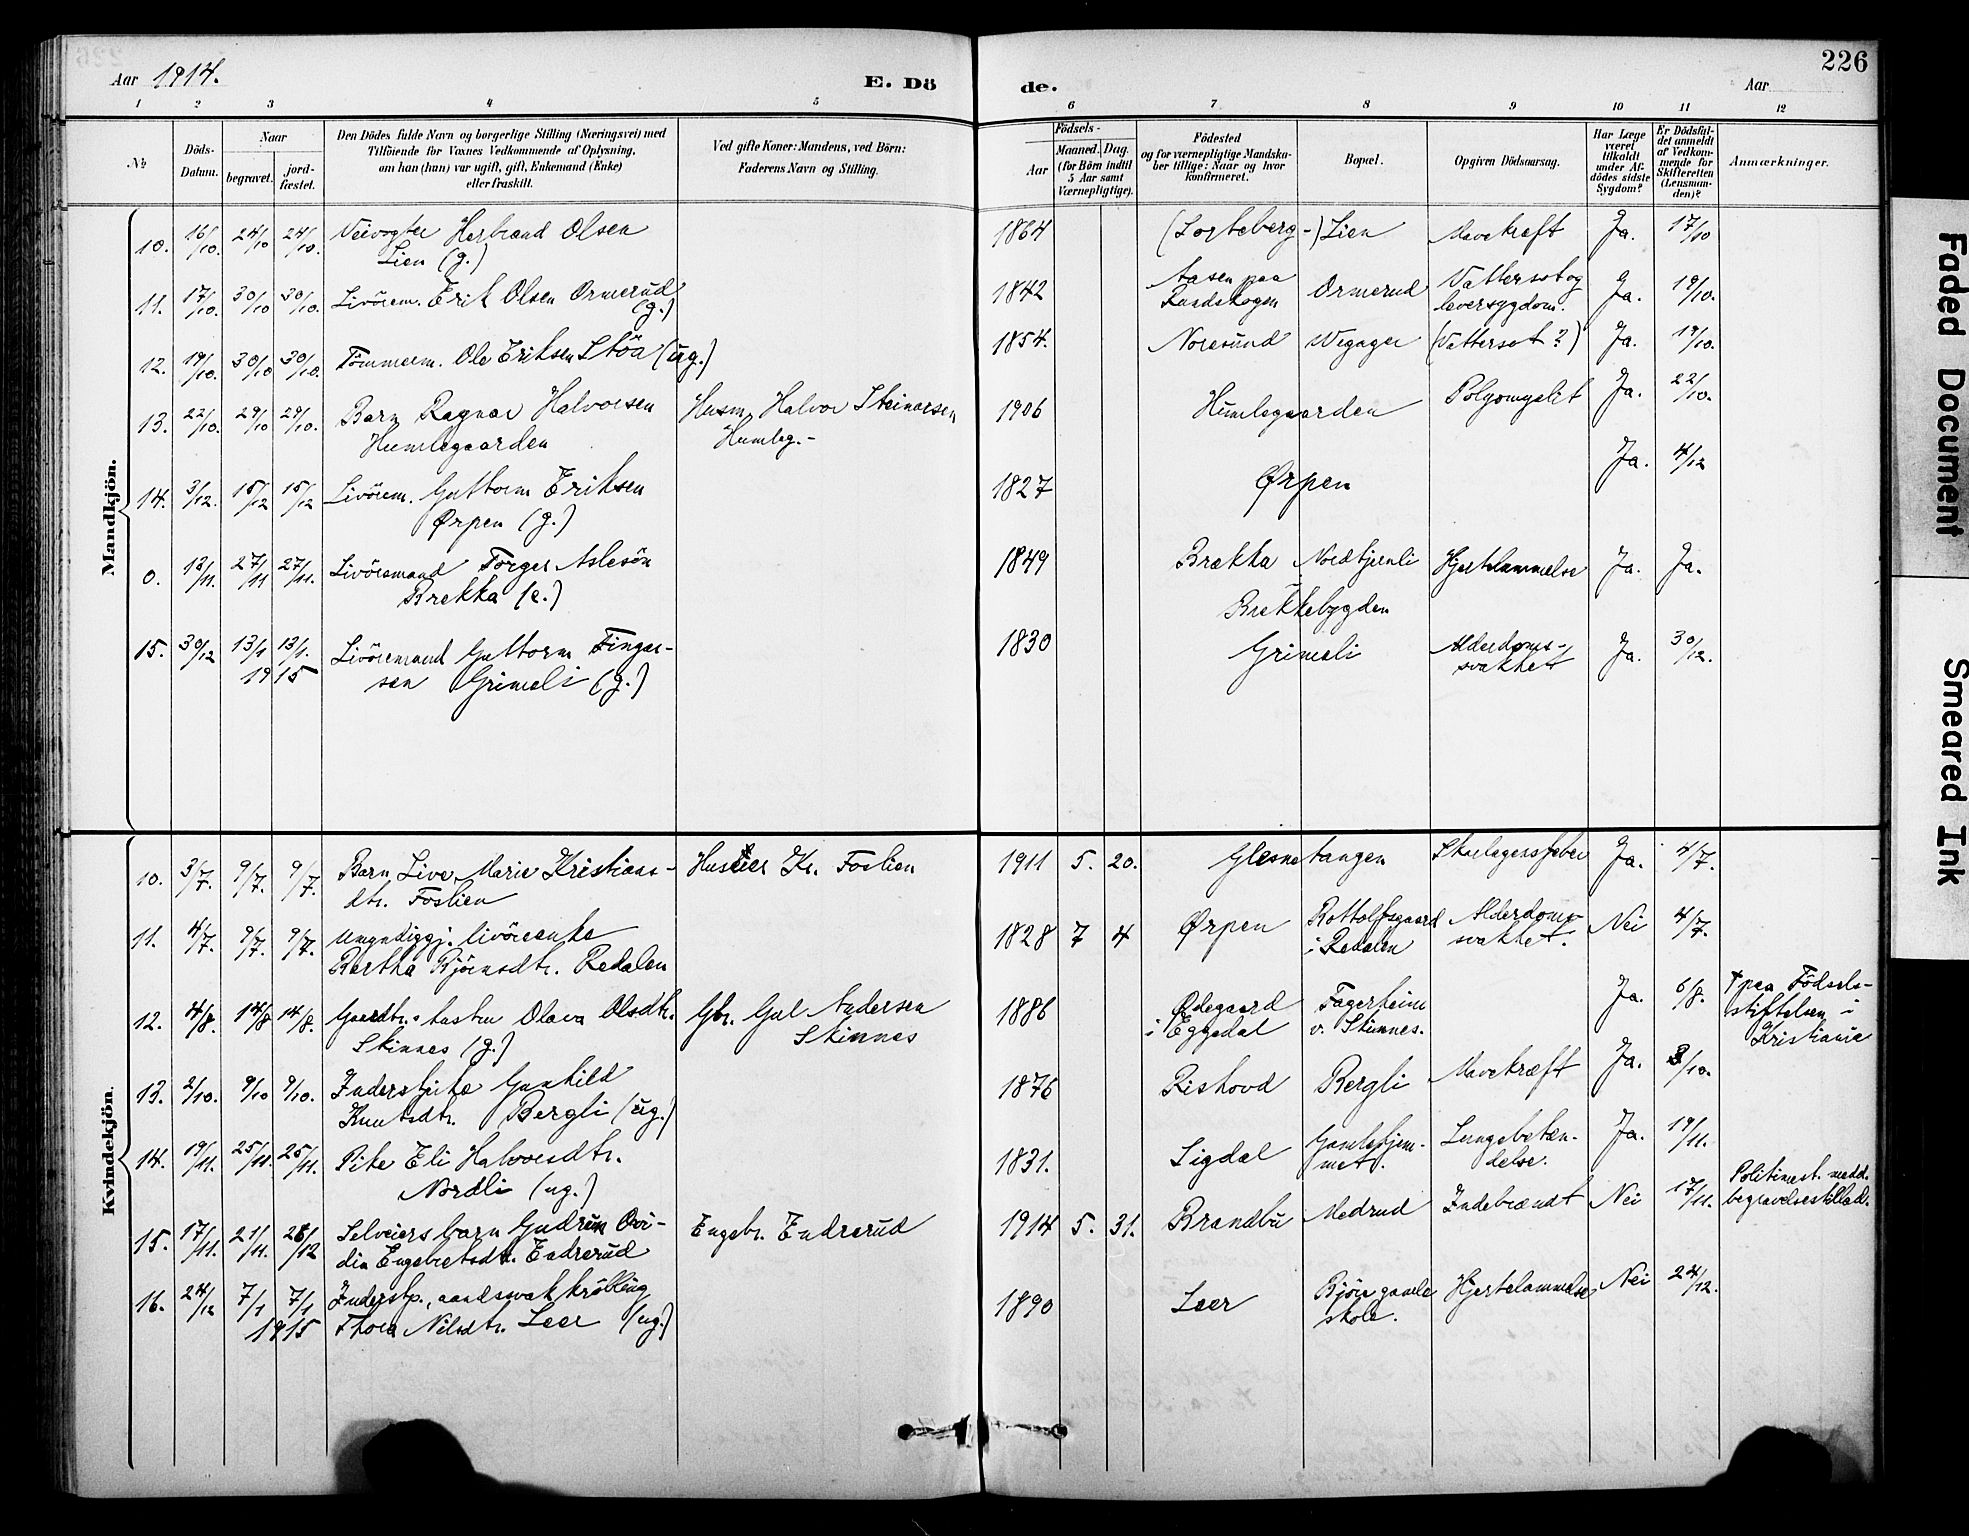 226
Aar 1914.
E. Dö
de.
Aar
1 2 3 4 5 6 7 8 9 10 11 12
No
Döds-
Datum.
Naar
begravet.
jord-
fæstet.
Den Dödes fulde Navn og borgerlige Stilling (Næringsvei) med
Tilföiende for Voxnes Vedkommende af Oplysning,
om han (hun) var ugift, gift, Enkemand (Enke)
eller fraskilt.
Ved gifte Koner: Mandens, ved Börn:
Faderens Navn og Stilling.
Födsels-
Aar
Maaned. Dag.
(for Börn indtil
5 Aar samt
Værnepligtige).
Födested
og for værnepligtige Mandska-
ber tillige: Naar og hvor
konfirmeret.
Bopæl.
Opgiven Dödsaarsag.
Har Læge
været
tilkaldt
under Af-
dödes sidste
Sygdom?
Er Dödsfal-
det anmeldt
af Vedkom-
mende for
Skifteretten
(Lensman-
den)?
Anmærkninger.
Mandkjön.
10. 16/10. 24/10 24/10. Veivogter Herbrand Olsen
Lien (g.)
1864 (Lorteberg-) Lien Mavekræft Ja. 17/10
11. 17/10. 30/10 30/10. Livörem. Erik Olsen Ormerud
(g.)
1842 Aasen paa
Ormerud Vattersot og
leversygdom. Ja. 19/10.
12. 19/10. 30/10 30/10. Tömmerm. Ole Eriksen Stöa (ug.)
1854. Noresund Wegager (Vattersot?) Ja. 19/10.
13. 22/10. 29/10 29/10. Barn Ragnar Halvorsen
Humlegaarden
Husm. Halvor Steinarsen
Humleg.-
1906 Humlegaarden Ja. 22/10.
14. 3/12. 15/12 15/12 Livörem. Guttorm Eriksen
Ørpen (g.)
1827 Ørpen Ja. 4/12
0. 13/11. 27/11 27/11. Livöremand Torger Aslesön
Brekka (e.)
1849 Brækka Nordtjernli Hjertelammelse Ja. Ja.
Brækkebygden
15. 30/12 13/1 13/1. Livöremand Guttorm Fingar-
1915 sen Grimeli (g.)
1830 Grimeli Alderdoms-
svakhet Ja. 30/12.
Kvindekjön.
10. 3/7. 9/7. 9/7. Barn Live Marie Kristians-
dtr. Foslien
Huseier Kr. Foslien
1911 5. 20. Glesnetangen Skarlagensfeber Ja. 4/7.
11. 4/7. 9/7. 9/7. Umyndiggj. livöreenke
Bertha Björnsdtr. Redalen
1828 7 4 Ørpen Rottolfsgaard
i Redalen Alderdoms-
svakhet. Nei 4/7.
12. 4/8. 14/8 14/8. Gaardbr. hustru Olava Olsdtr.
Skinnes (g.)
Gbr. Gul Andersen
Skinnes
1886 Ødegaard
i Eggedal Fagerheim
v. Skinnes. Ja. 6/8. † paa Födsels-
stiftelsen i
Kristiania
13. 2/10. 9/10 9/10. Inderstpike Gunhild
Knutsdtr. Bergli (ug.)
1876 Rishovd Bergli Mavekræft Ja. 3/10.
14. 19/11. 25/11. 25/11. Pike Eli Halvorsdtr.
Nordli (ug.)
1831. Sigdal Gamlehjem-
met. Lungebetæn-
delse. Ja. 19/11.
15. 17/11. 21/11. 26/12 Selveiers barn Gudrun Ovi-
dia Engebretsdtr. Endrerud
Engebr. Endrerud
1914 5. 31. Brandbu Medrud Indebrændt Nei 17/11. Politimest. medd.
begravelsestillad.
16. 24/12 7/1 7/1 Inderstp., aandssvak krøbling
1915 Thora Nilsdtr. Leer (ug.)
1890 Leer Björe gamle
skole. Hjertelammelse Nei 24/12.
Faded Document
Smeared Ink